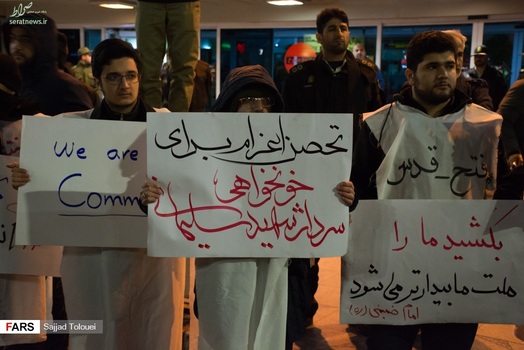 صراط
seratnews.ir
We are
Comm
تحصن اعزام برای
خونخواهی
سردار شهید سلیمانی
فتح_قدس
بکشید ما را
ملت ما بیدارتر می شود
امام خمینی (ره)
FARS
Sajjad Tolouei